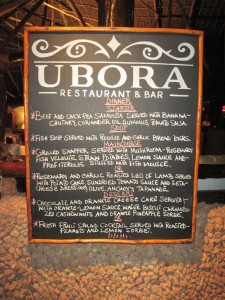 UBORA
RESTAURANT & BAR
DINNER
STARTER
BEEF AND CHICK PEA SAMOOSA SERVED WITH BANANA-
CHUTNEY, CORIANDER OIL, HUMMUS, TOMATO SALSA
SOUP
FISH SOUP SERVED WITH ROUILLE AND GARLIC BREAD
MAIN COURSE
GRILLED SNAPPER, SERVED WITH MUSHROOM - ROSEMARY
FISH VELOUTE, STRAW POTATOES, LEMON SAUCE AND
PROFITEROLES STUFFED WITH FISH MOUSSE.
OR
ROSEMARY AND GARLIC ROASTED LEG OF LAMB SERVED
WITH POTATO CAKE, SUNDRIED TOMATO SAUCE AND FETA-
CHEESE DRESSING, OLIVE ANCHOVY TAPANADE.
DESSERT
CHOCOLATE AND ORANGE CHEESE CAKE SERVED-
WITH ORANGE-LEMON SAUCE, WAFER BISCUIT CARAMEL-
IZED CASHEWNUTS AND ORANGE PINEAPPLE SORBE.
OR
FRESH FRUIT SALAD COCKTAIL SERVED WITH ROASTED-
PEANUTS AND LEMON SORBET.